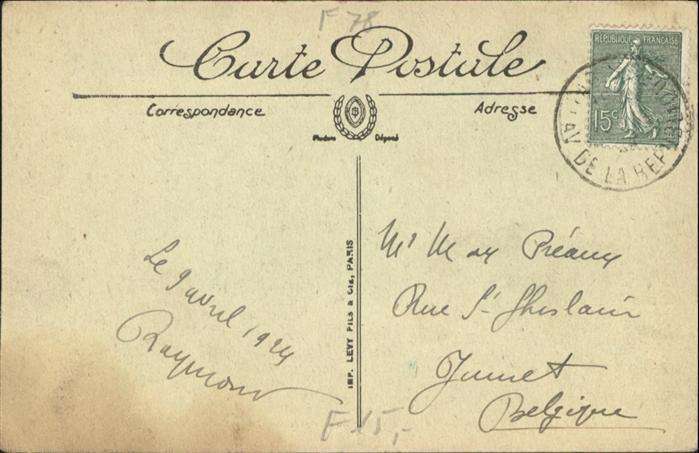 F 78
Carte Postale
Correspondance
Adresse
Modèle Déposé
RÉPUBLIQUE FRANÇAISE
15c
AV. DE LA REP
IMP. LEVY FILS & Cie, PARIS
Le 9 avril 1924
Raymond
Mr Max Préaux
Rue St Ghislain
Jumet
Belgique
F 15,-